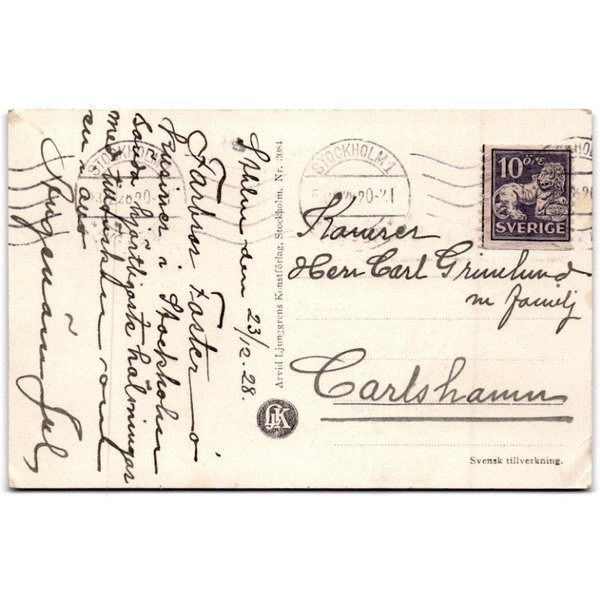 Sthlm den 23/12. 28.
Farbror Faster o
kusiner i Stockholm
sända hjärtligaste hälsningar
med tillönskan om
en i allo
Jul
Arvid Ljunggrens Konstförlag, Stockholm. Nr. 2084
LJK
STOCKHOLM 1
20-21
STOCKHOLM
28.20
10 ÖRE
SVERIGE
Kamrer
Herr Carl Grimlund
m familj
Carlshamn
Svensk tillverkning.